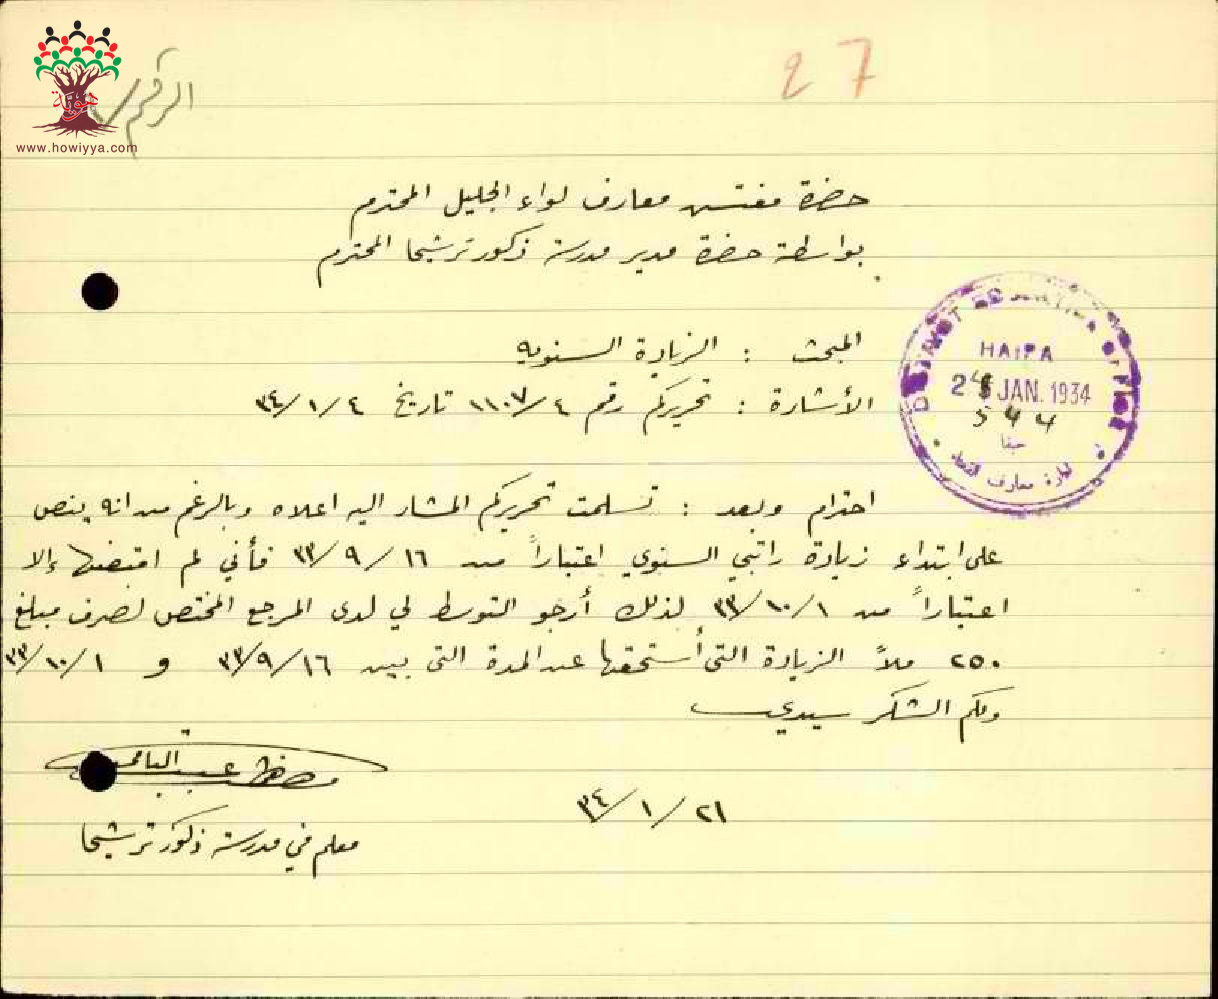 27
الرقم/
هوية
www.howiyya.com
حضرة مفتش معارف لواء الجليل المحترم
بواسطة حضرة مدير مدرسة ذكور ترشيحا المحترم
المبحث : الزيادة السنويه
الأشارة : تحريركم رقم ١١٠٧/٤ تاريخ ٣٤/١/٤
DISTRICT EDUCATION OFFICE
HAIFA
24 JAN. 1934
544
حيفا
معارف
احترام وبعد : تسلمت تحريركم المشار اليه اعلاه وبالرغم من انه ينص
على ابتداء زيادة راتبي السنوي اعتباراً من ٣٣/٩/١٦ فأني لم اقبضها إلا
اعتباراً من ٣٣/١٠/١ لذلك أرجو التوسط لي لدى المرجع المختص لصرف مبلغ
٢٥٠ ملاً الزيادة التي أستحقها عن المدة التي بين ٣٣/٩/١٦ و ٣٣/١٠/١
ولكم الشكر سيدي
مصطفى عبد
٣٤/١/٢١
معلم في مدرسة ذكور ترشيحا